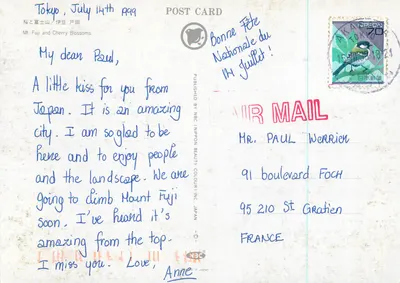 Tokyo, July 14th 1999
POST CARD
桜と富士山、伊豆 戸田
Mt. Fuji and Cherry Blossoms
Bonne Fête
Nationale du
14 juillet!
My dear Paul,
A little kiss for you from
Japan. It is an amazing
city. I am so glad to be
here and to enjoy people
and the landscape. We are
going to climb Mount Fuji
soon. I've heard it's
amazing from the top.
I miss you. Love,
Anne
70
AIR MAIL
Mr. PAUL Werrier
91 boulevard FOCH
95 210 St Gratien
FRANCE